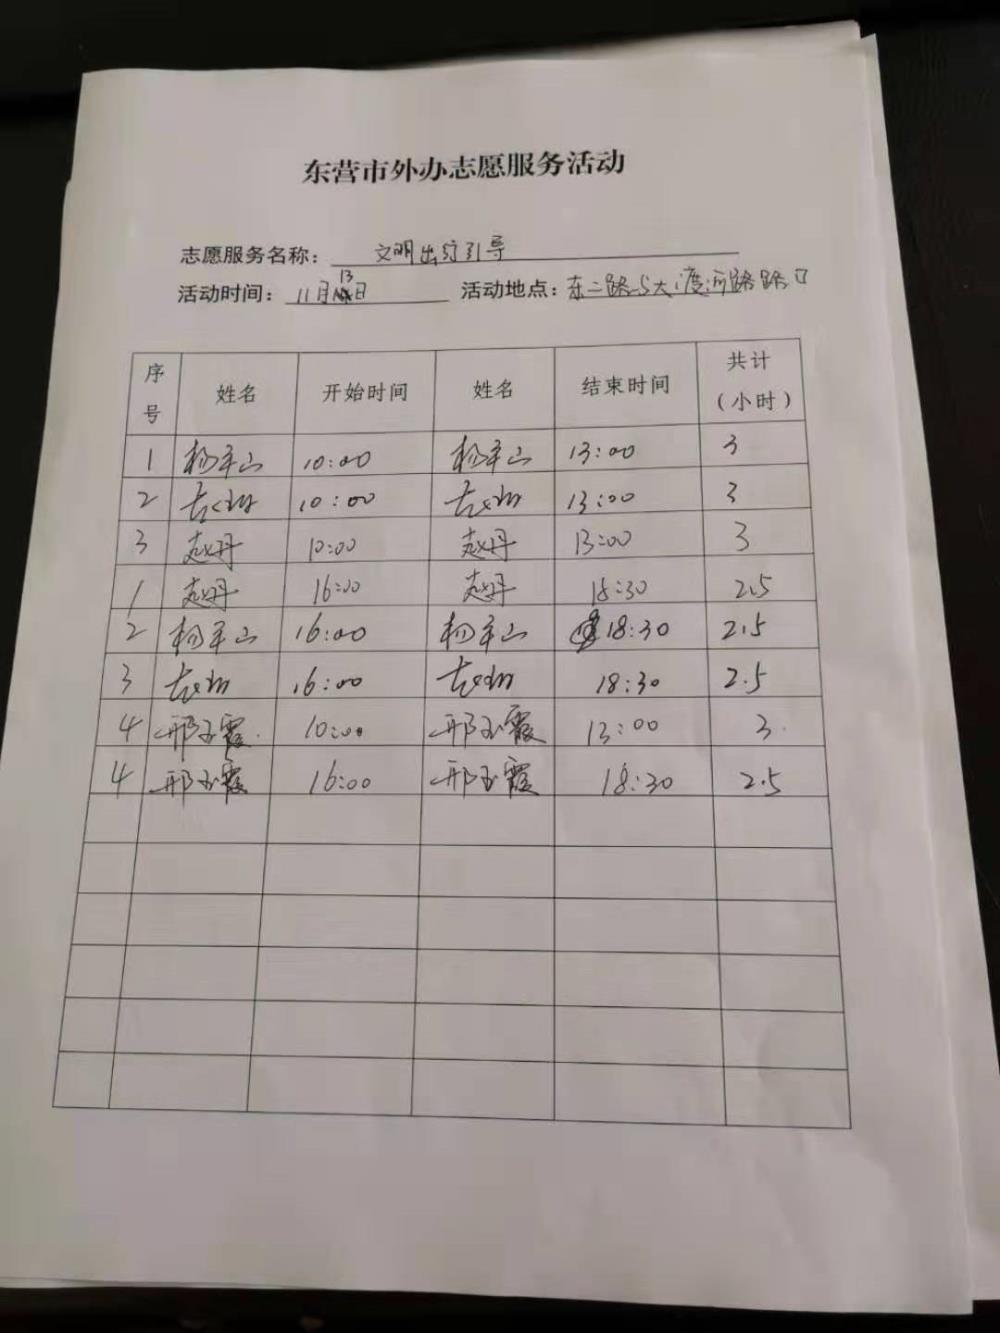 东营市外办志愿服务活动
志愿服务名称: 文明出行引导
活动时间: 11月13日 活动地点: 东二路与大渡河路路口
序号 姓名 开始时间 姓名 结束时间 共计(小时)
1 杨军山 10:00 杨军山 13:00 3
2 10:00 13:00 3
3 赵丹 10:00 赵丹 13:00 3
1 赵丹 16:00 赵丹 18:30 2.5
2 杨军山 16:00 杨军山 18:30 2.5
3 16:00 18:30 2.5
4 邢玉霞 10:00 邢玉霞 13:00 3
4 邢玉霞 16:00 邢玉霞 18:30 2.5